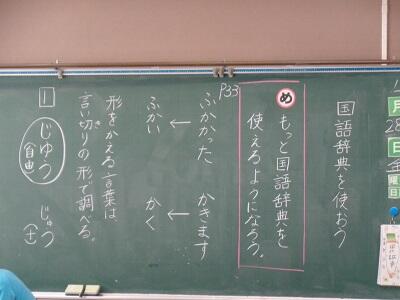 国語辞典を使おう
め もっと国語辞典を
使えるようになろう。
P33
ふかかった かきます
↓ ↓
ふかい かく
形をかえる言葉は、
言い切りの形で調べる。
き
1
じゆう じゅう
(自由) (十)
月
28
日
曜
日